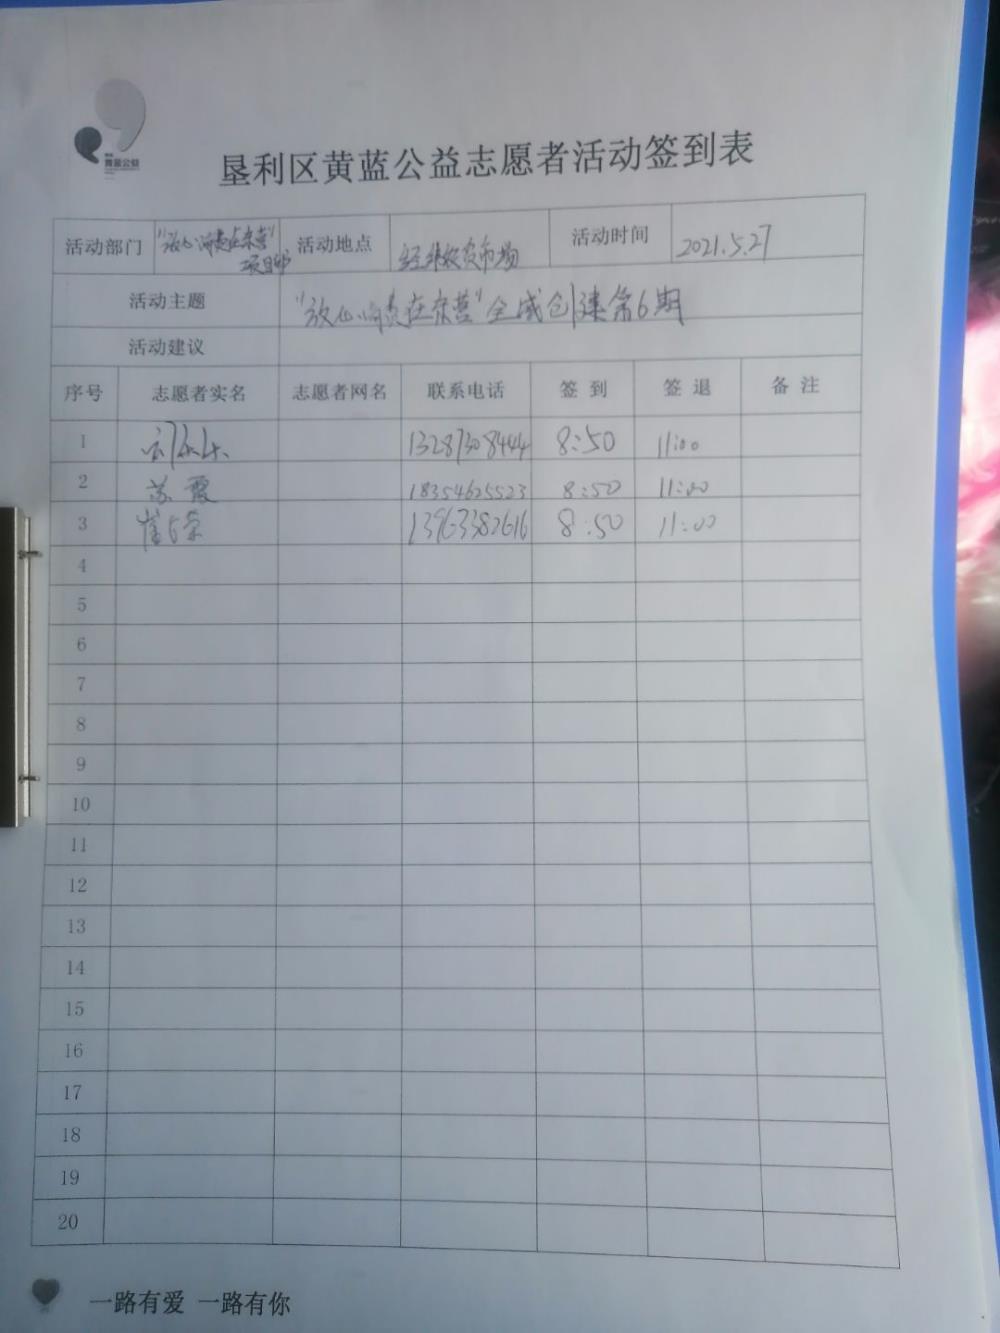 黄蓝公益
垦利区黄蓝公益志愿者活动签到表
活动部门 "放心消费在东营" 项目部 活动地点 经纬批发市场 活动时间 2021.5.27
活动主题 "放心消费在东营"全域创建第6期
活动建议
序号 志愿者实名 志愿者网名 联系电话 签到 签退 备注
1 13287308444 8:50 11:00
2 苏霞 18354625523 8:50 11:00
3 崔 荣 13963382616 8:50 11:00
4
5
6
7
8
9
10
11
12
13
14
15
16
17
18
19
20
一路有爱 一路有你